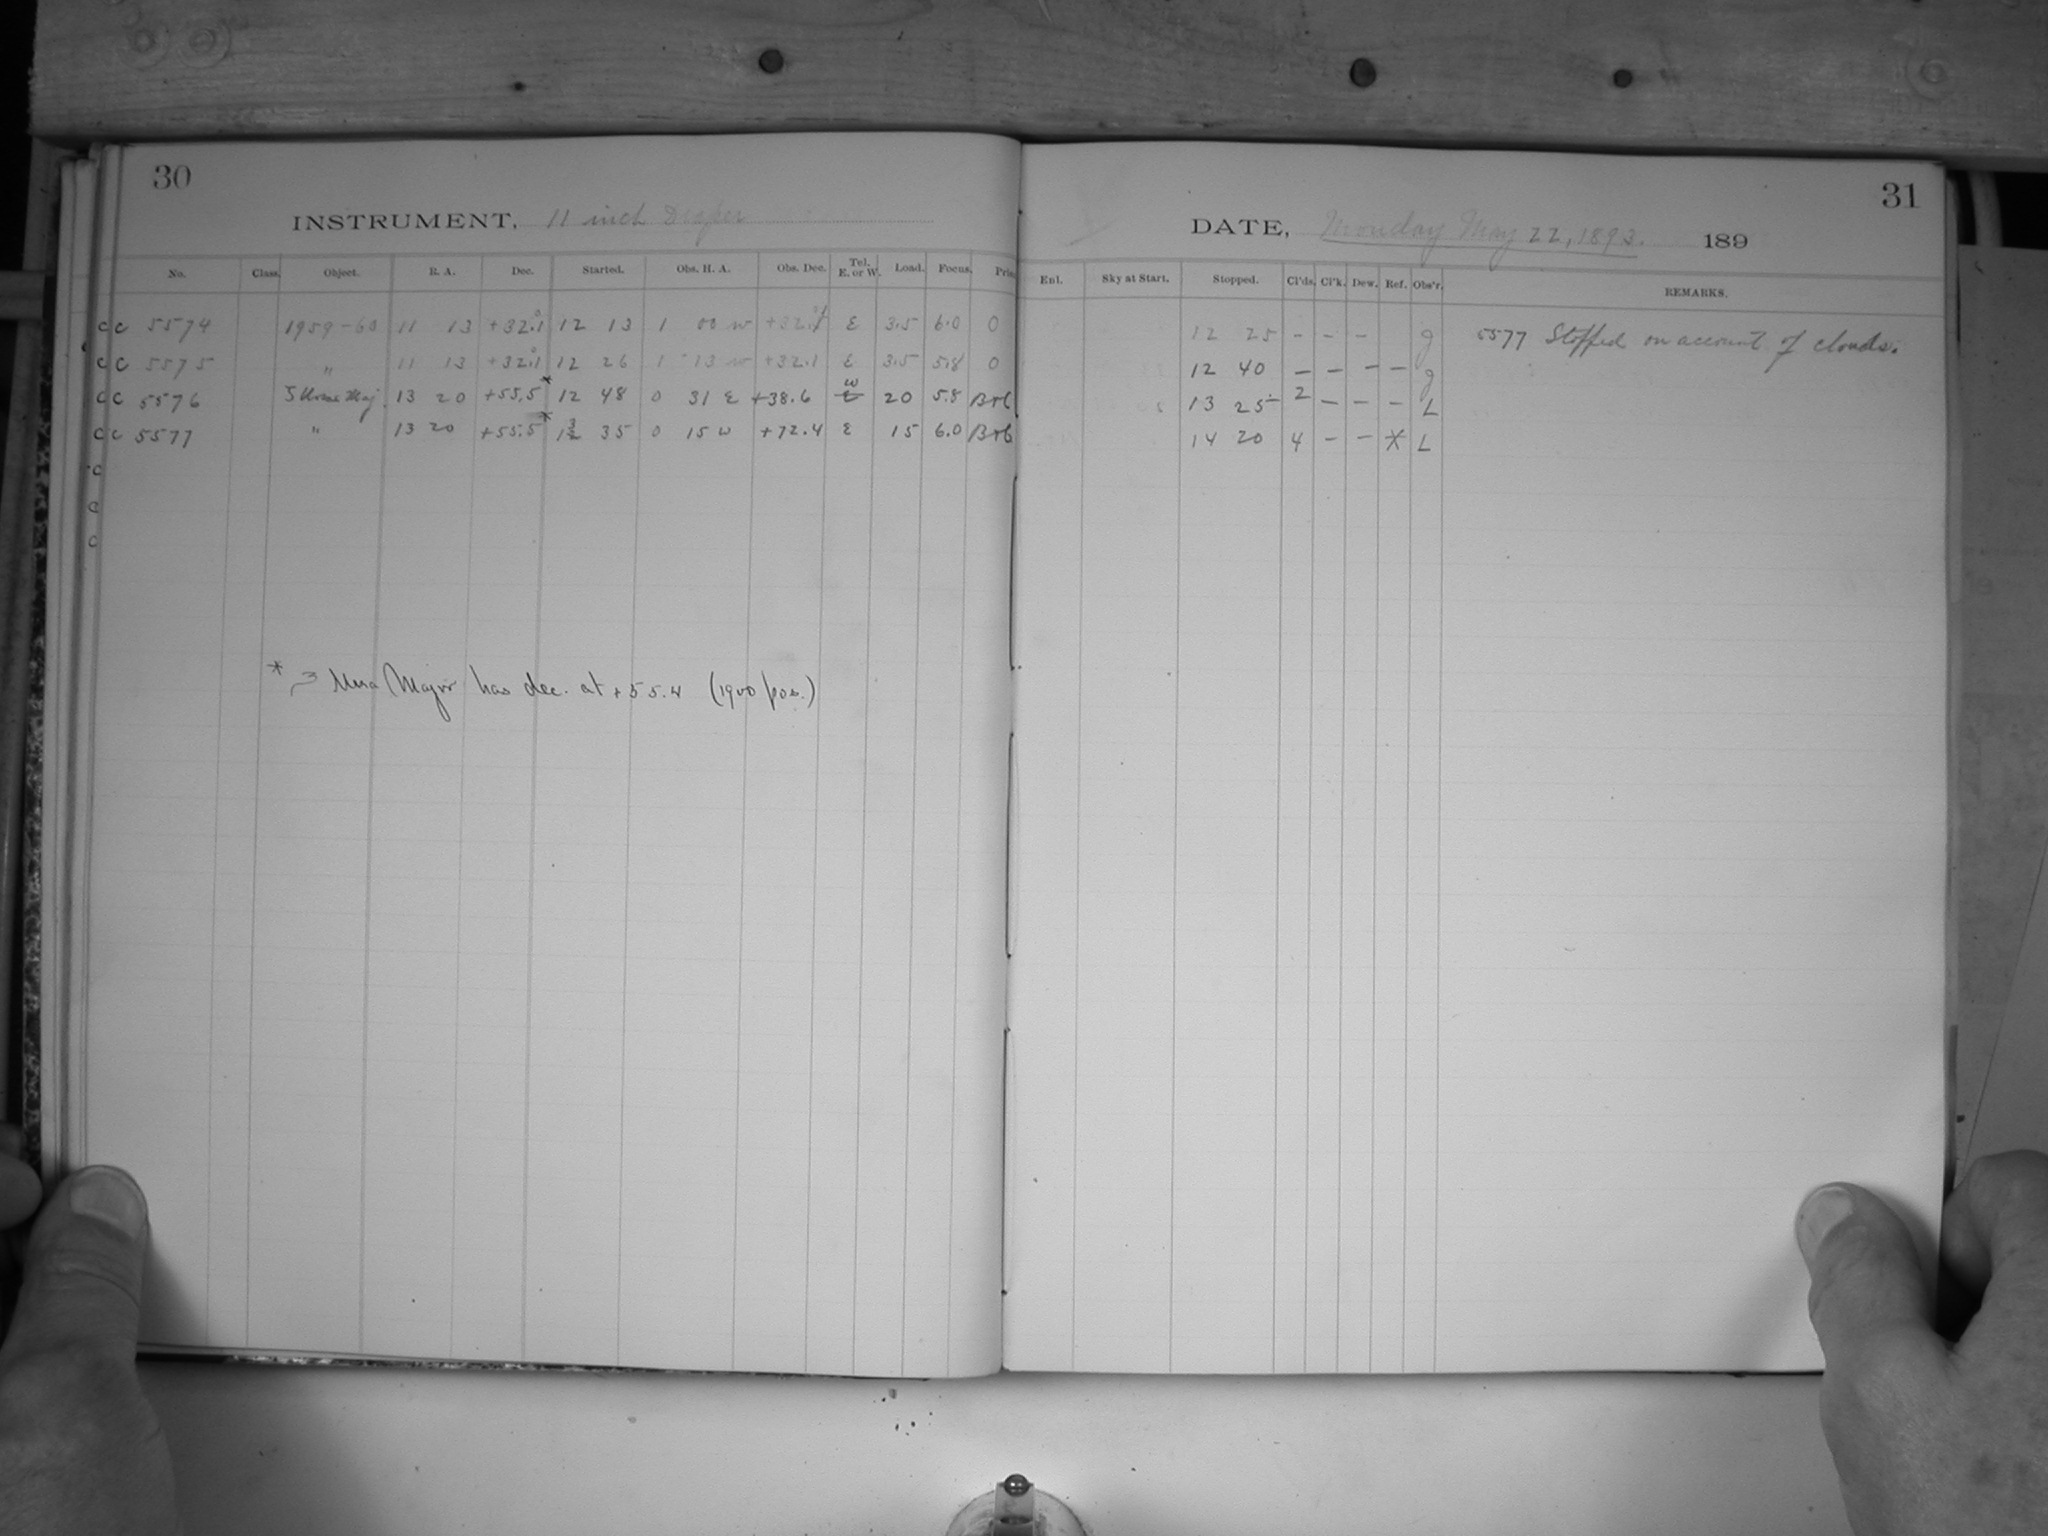 30
INSTRUMENT, 11 inch Draper
No. Class. Object. R. A. Dec. Started. Obs. H. A. Obs. Dec. Tel. E. or W. Load. Focus. Pris
C C 5574 1959-60 11 13 +32.1 12 13 1 00 W E 3.5 6.0 0
C C 5575 " 11 13 +32.1 12 26 1 13 W +32.1 E 3.5 5.8 0
C C 5576 Ursae Maj. 13 20 +55.5* 12 48 0 31 E +38.6 W E 20 5.8 B+C
C C 5577 " 13 20 +55.5* 35 0 15 W +72.4 E 15 6.0
C
C
C
* ζ Ursa Major has dec. at +55.4 (1900 pos.)
31
DATE, Monday May 22, 1893. 189
Enl. Sky at Start. Stopped. Cl'ds. Cl'k. Dew. Ref. Obs'r. REMARKS.
12 25 - - - g 5577 Stopped on account of clouds.
12 40 - - - - g
13 25 2 - - - L
14 20 4 - - * L